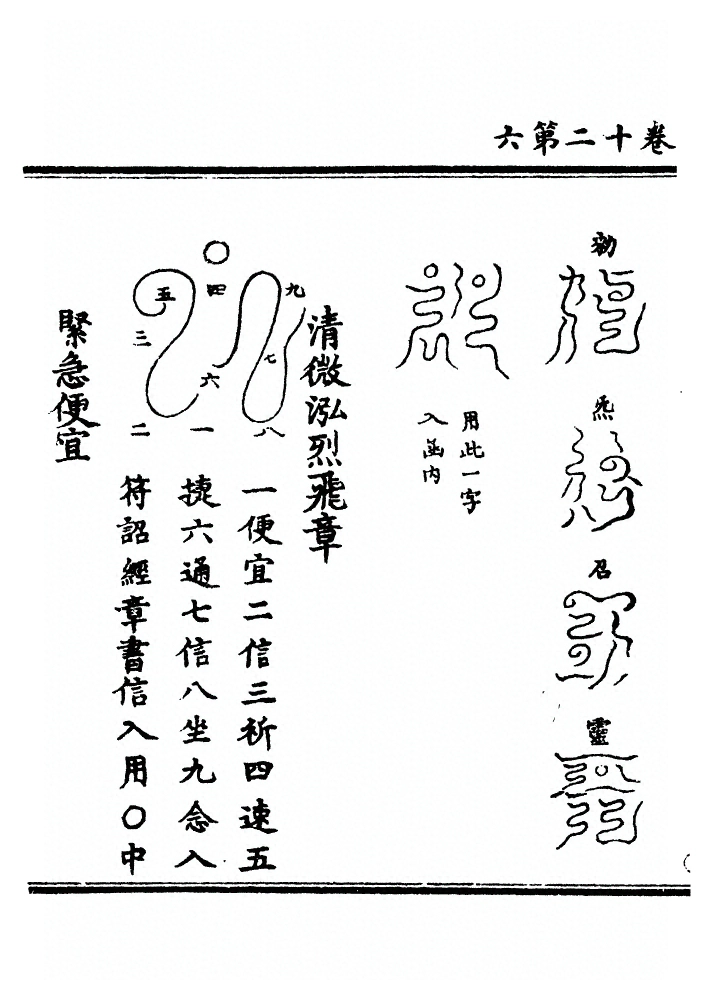 卷十二第六
勑
炁
召
靈
用此一字
入函内
清微泓烈飛章
一便宜二信三祈四速五
捷六通七信八坐九念入
符詔經章書信入用〇中
九
七
八
四
六
一
五
三
二
緊急便宜